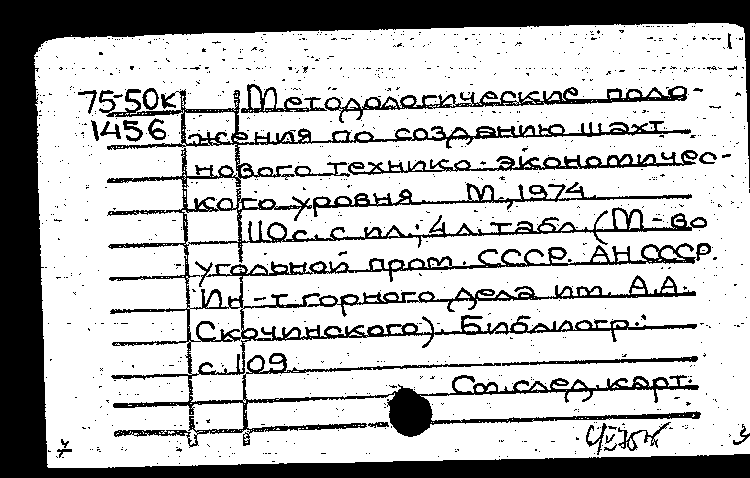 75-50к Методологические поло-
1456 жения по созданию шахт
нового технико-экономичес-
кого уровня. М., 1974.
110 с. с ил.; 4 л. табл. (М-во
угольной пром. СССР. АН СССР.
Ин-т горного дела им. А.А.
Скочинского). Библиогр.:
с. 109.
См. след. карт.